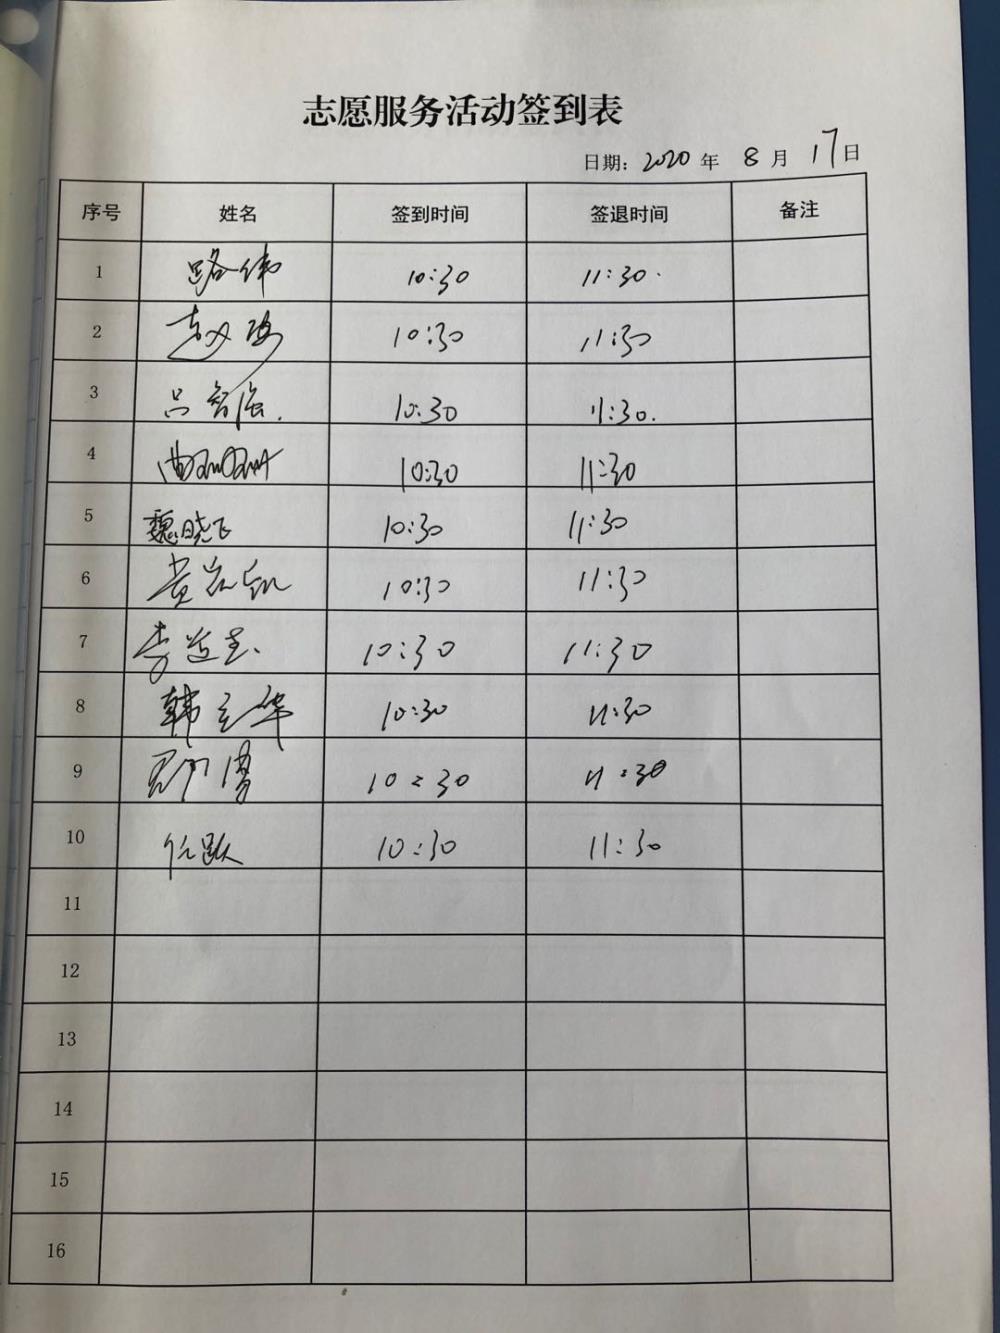 志愿服务活动签到表
日期: 2020 年 8 月 17 日
序号 姓名 签到时间 签退时间 备注
1 路伟 10:30 11:30
2 赵 10:30 11:30
3 吕智强 10:30 11:30
4 曲 10:30 11:30
5 魏晓飞 10:30 11:30
6 黄 10:30 11:30
7 李 10:30 11:30
8 韩立华 10:30 11:30
9 10:30 11:30
10 任跃 10:30 11:30
11
12
13
14
15
16